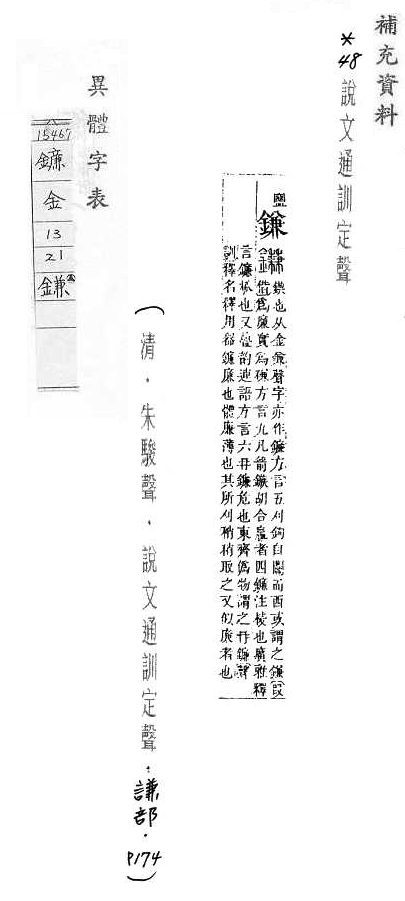 補充資料
*48 說文通訓定聲
鹽
鎌
鍥也从金兼聲字亦作鐮方言五刈鉤自關而西或謂之鎌〔叚
借〕爲廉實爲稜方言九凡箭鏃胡合嬴者四鐮注棱也廣雅釋
言鐮棱也又疊韵連語方言六冉鐮危也東齊物謂之冉鐮聲
訓釋名釋用器鐮廉也體廉薄也其所刈稍稍取之又似廉者也
(清．朱駿聲．說文通訓定聲．謙部．P174)
異體字表
15467
鐮
金
13
21
鎌